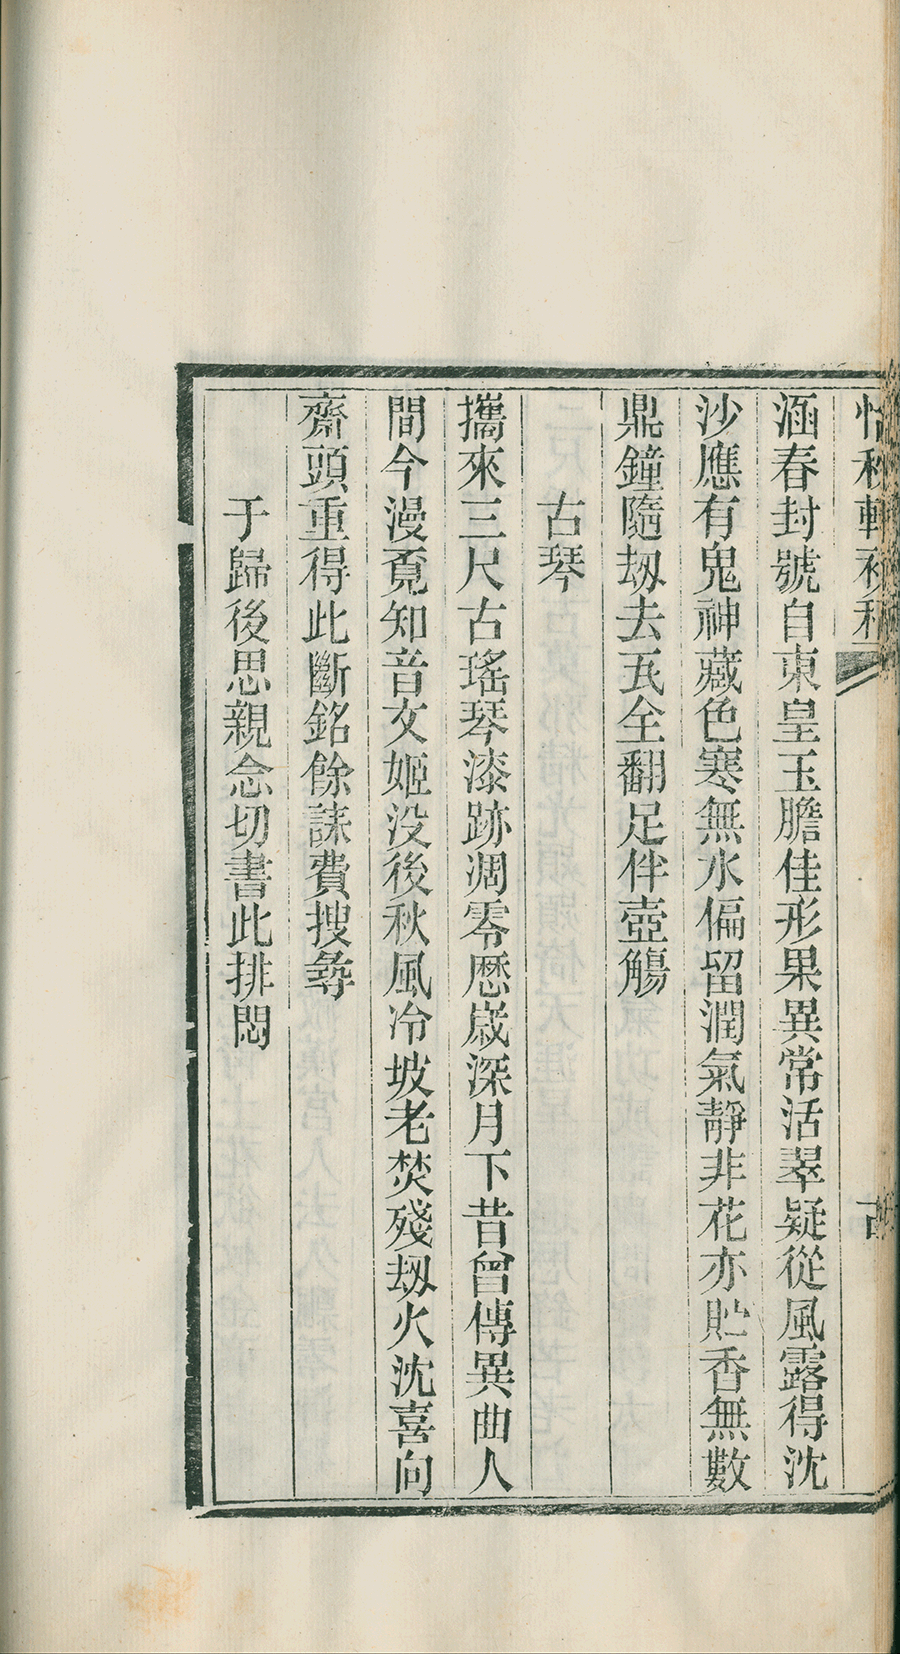 涵春封號自東皇玉膽佳形果異常活翠疑從風露得沈
沙應有鬼神藏色寒無水偏留潤氣靜非花亦貯香無數
鼎鐘隨刼去瓦全翻足伴壺觴
古琴
攜來三尺古瑤琴漆跡凋零歷歲深月下昔曾傳異曲人
間今漫覔知音文姬没後秋風冷坡老焚殘刼火沈喜向
齋頭重得此斷銘餘誄費搜尋
于歸後思親念切書此排悶